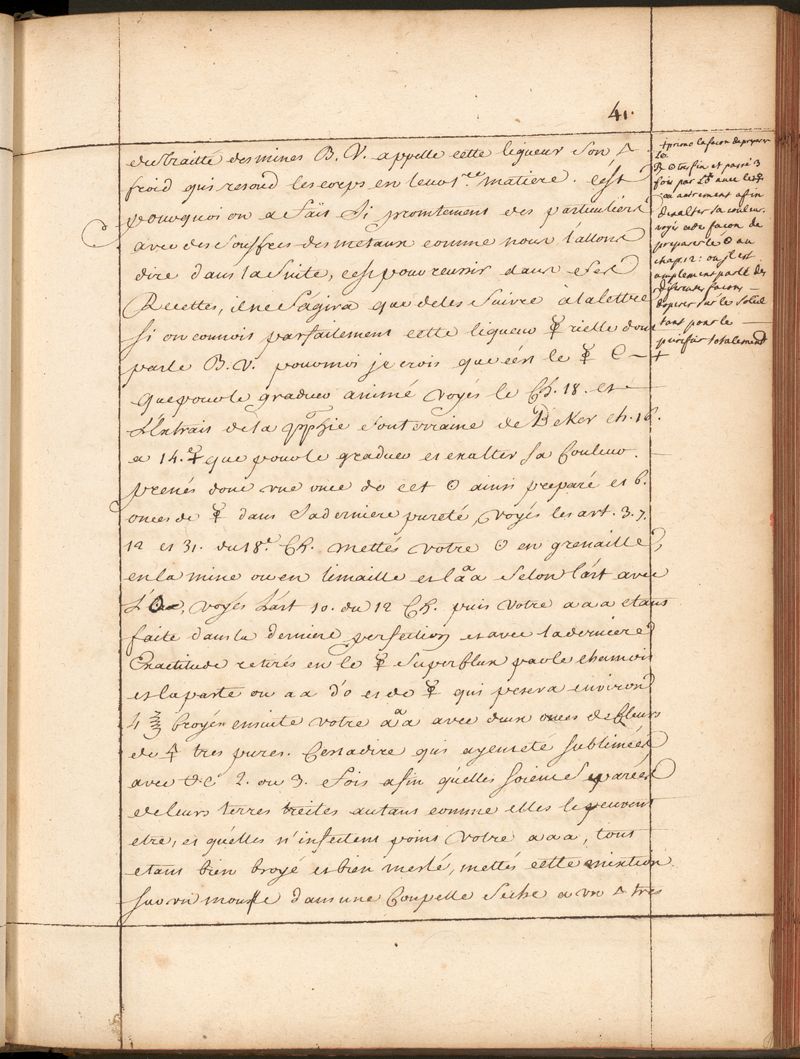 41.
du traitté des mines B. V. appelle cette liqueur son 🜂
froid qui resoud les corps en leur 1.ere matiere. C'est
pourquoi on a fait si promtement des particuliers
avec des souffres des metaux comme nous l'allons
dire dans la suite, c'est pour reussir dans ces
Recettes, il ne s'agira que de les suivre à la lettre
si on connois parfaitement cette liqueur ☿rielle dont
parle B. V. pour moi je crois que c'est le ☿
que pour le graduer animé voyés le Ch. 18. et
L'Extrait de la souterraine de Beker ch. 16.
a 14. que pour le graduer et exalter sa Couleur.
prenés donc une once de cet ☉ ainsi preparé et 6.
onces de ☿ dans sa derniere pureté, voyés les art. 3. 7.
12 et 31. du 18.e Ch. mettés votre ☉ en grenaille,
en lamine ou en limaille et l'aaa selon l'art avec
voyés l'art 10. du 12 Ch. puis votre aaa etant
faite dans la derniere perfection et avec la derniere
Exactitude retirés en le ☿ superflux par le chamois
et la paste ou aa d'o et de ☿ qui pesera environ
4 ℥ broyés ensuite votre aaa avec deux onces de fleurs
de 🜍 tres pures. C'est a dire qui ayent eté sublimées
avec 2. ou 3. fois afin qu'elles soient separées
de leurs terres autant comme elles le peuvent
etre, et qu'elles n'infectent point votre aaa, tout
etant bien broyé et bien meslé, mettés cette mixtion
sur un moufle dans une Coupelle seche a un 🜂 tres
+ primo la facon de preparer
lo.
℞ ☉ tres fin et passé 3
fois par avec
ou autrement afin
d'exalter sa couleur.
voyés cette facon de
preparer le ☉ au
chap. 12: ou il est
amplement parlé des
differentes facons
d'operer sur le Soleil
tant pour le
purifier totalement
+